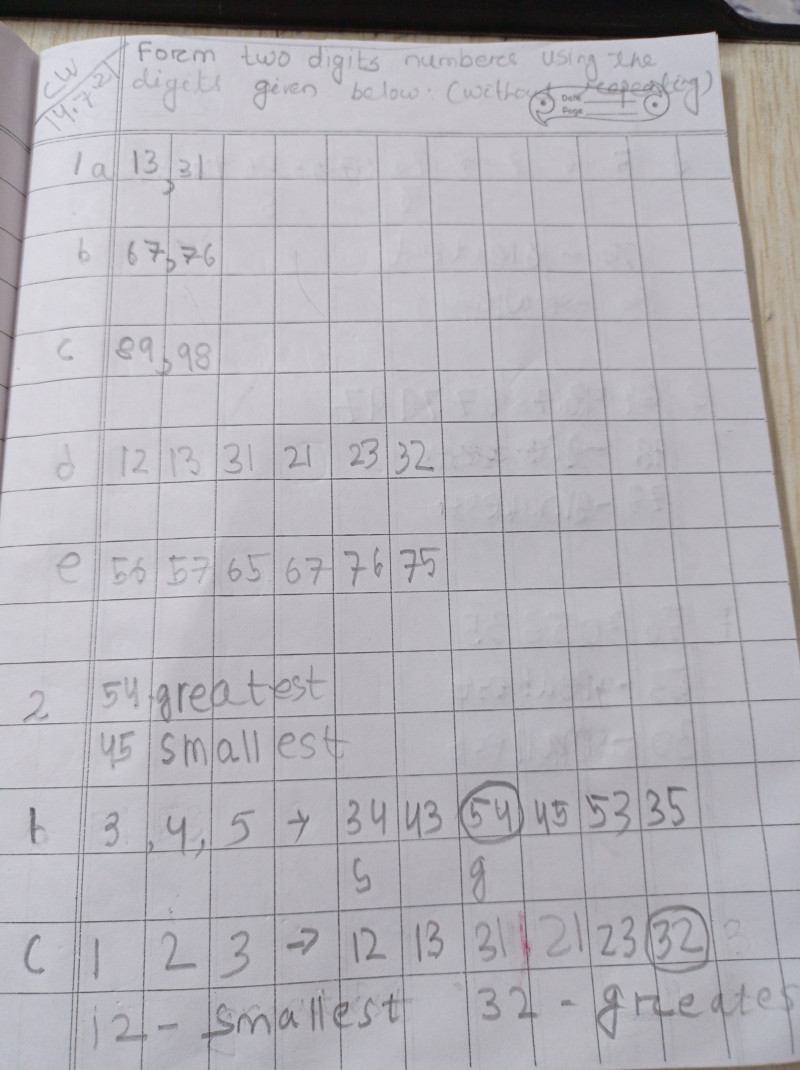 CW
14.7.21
Form two digits numbers using the
digits given below. (without repeating)
Date
Page
1 a 13, 31
b 67, 76
c 89, 98
d 12 13 31 21 23 32
e 56 57 65 67 76 75
2 54 greatest
45 smallest
b 3, 4, 5 → 34 43 54 45 53 35
s g
C 1 2 3 → 12 13 31 21 23 32
12 - smallest 32 - greates